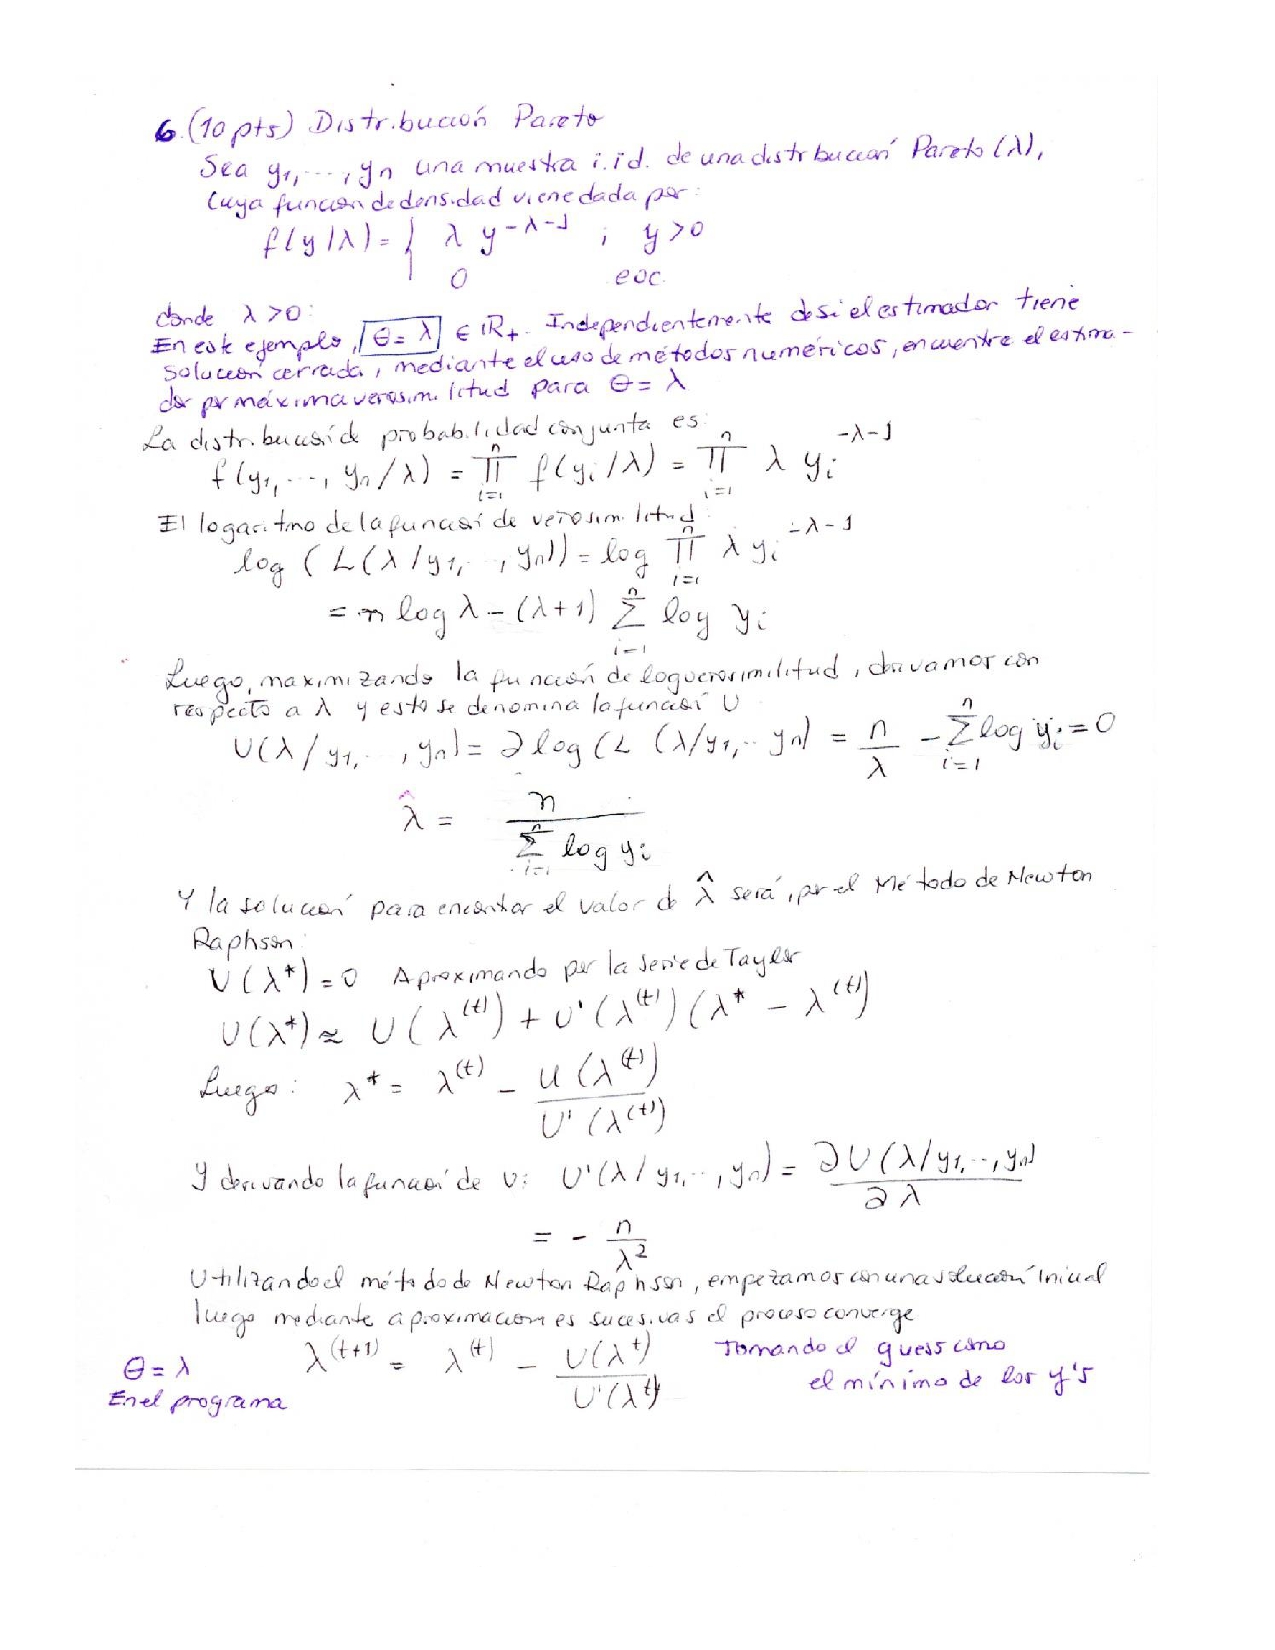 6. (10 pts) Distribución Pareto
Sea y₁, ..., yₙ una muestra i.id. de una distribución Pareto (λ),
cuya función de densidad viene dada por:
f(y/λ) = { λ y^{-λ-1} ; y>0
0 eoc
donde λ>0:
En este ejemplo, θ=λ ∈ ℝ₊. Independientemente de si el estimador tiene
solución cerrada, mediante el uso de métodos numéricos, encuentre el estima-
dor por máxima verosimilitud para θ=λ
La distribución de probabilidad conjunta es:
f(y₁, ..., yₙ/λ) = ∏_{i=1}^{n} f(y_i/λ) = ∏_{i=1}^{n} λ y_i^{-λ-1}
El logaritmo de la función de verosimilitud:
log (L(λ/y₁, .., yₙ)) = log ∏_{i=1}^{n} λ y_i^{-λ-1}
= n log λ - (λ+1) ∑_{i=1}^{n} log y_i
Luego, maximizando la función de logverosimilitud, derivamos con
respecto a λ y esto se denomina la función U
U(λ/y₁, .., yₙ) = ∂ log (L (λ/y₁, .. yₙ) = n/λ - ∑_{i=1}^{n} log y_i = 0
λ̂ = n / ∑_{i=1}^{n} log y_i
Y la solución para encontrar el valor de λ̂ será, por el Método de Newton
Raphson:
U(λ*) = 0 Aproximando por la serie de Taylor
U(λ*) ≈ U(λ^{(t)}) + U'(λ^{(t)}) (λ* - λ^{(t)})
Luego: λ* = λ^{(t)} - U(λ^{(t)}) / U'(λ^{(t)})
Y derivando la función de U: U'(λ/y₁, .., yₙ) = ∂U(λ/y₁, .., yₙ) / ∂λ
= - n/λ²
Utilizando el método de Newton Raphson, empezamos con una solución inicial
luego mediante aproximaciones sucesivas el proceso converge
λ^{(t+1)} = λ^{(t)} - U(λ^{t}) / U'(λ^{t})
Tomando el guess como
el mínimo de los y's
θ=λ
En el programa